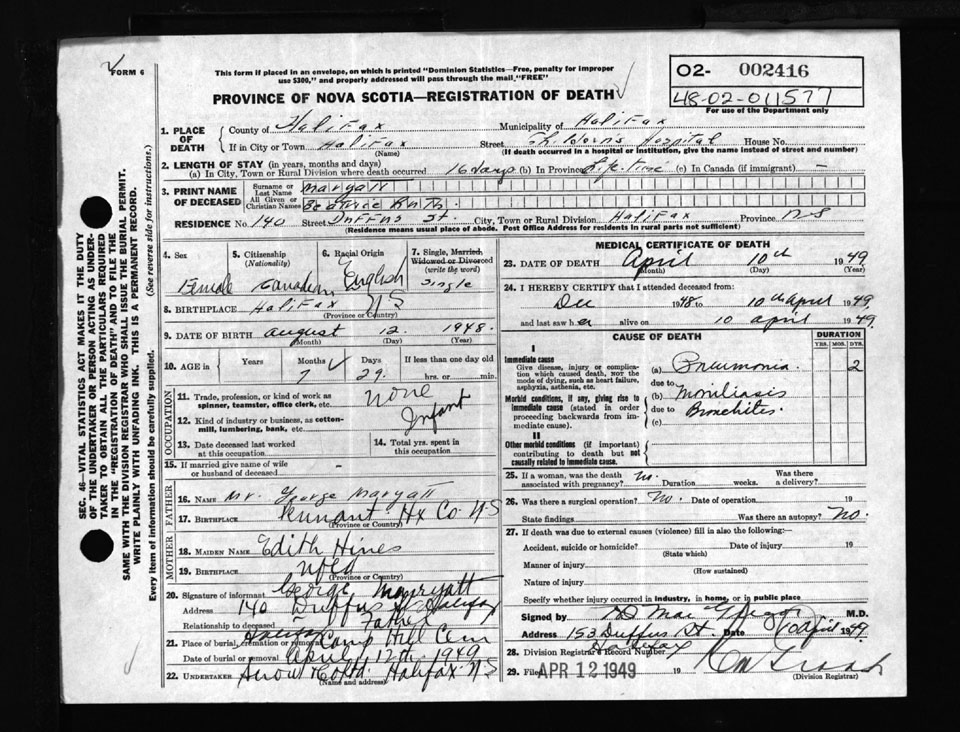 FORM 6
This form if placed in an envelope, on which is printed "Dominion Statistics—Free, penalty for improper
use $300," and properly addressed will pass through the mail "FREE"
PROVINCE OF NOVA SCOTIA—REGISTRATION OF DEATH
O2- 002416
48-02-011577
For use of the Department only
SEC. 46—VITAL STATISTICS ACT MAKES IT THE DUTY
OF THE UNDERTAKER OR PERSON ACTING AS UNDER-
TAKER TO OBTAIN ALL THE PARTICULARS REQUIRED
IN THE "REGISTRATION OF DEATH" AND TO FILE THE
SAME WITH THE DIVISION REGISTRAR WHO SHALL ISSUE THE BURIAL PERMIT.
WRITE PLAINLY WITH UNFADING INK. THIS IS A PERMANENT RECORD.
Every item of information should be carefully supplied. (See reverse side for instructions.)
1. PLACE OF DEATH County of Halifax Municipality of Halifax
If in City or Town Halifax (Name) Street Hospital House No.
(If death occurred in a hospital or institution, give the name instead of street and number)
2. LENGTH OF STAY (in years, months and days)
(a) In City, Town or Rural Division where death occurred 16 days (b) In Province Life time (c) In Canada (if immigrant) —
3. PRINT NAME OF DECEASED Surname or Last Name Maryatt
All Given or Christian Names Beatrice Ruth
RESIDENCE No. 140 Street Duffus St. City, Town or Rural Division Halifax Province NS
(Residence means usual place of abode. Post Office Address for residents in rural parts not sufficient)
4. Sex Female
5. Citizenship (Nationality) Canadian
6. Racial Origin English
7. Single, Married, Widowed or Divorced (write the word) Single
8. BIRTHPLACE Halifax NS (Province or Country)
9. DATE OF BIRTH August 12 1948 (Month) (Day) (Year)
10. AGE in Years Months 7 Days 29 If less than one day old hrs. or min.
OCCUPATION
11. Trade, profession, or kind of work as spinner, teamster, office clerk, etc. none
12. Kind of industry or business, as cotton-mill, lumbering, bank, etc. Infant
13. Date deceased last worked at this occupation
14. Total yrs. spent in this occupation
15. If married give name of wife or husband of deceased -
FATHER
16. NAME Mr. George Maryatt
17. BIRTHPLACE Pennant Hx Co. N.S (Province or Country)
MOTHER
18. MAIDEN NAME Edith Hines
19. BIRTHPLACE Nfld (Province or Country)
20. Signature of informant George Marryatt
Address 140 Duffus St Halifax
Relationship to deceased Father
21. Place of burial, cremation or removal Halifax Camp Hill Cem
Date of burial or removal April 12th 1949
22. UNDERTAKER Halifax N S (Name and address)
MEDICAL CERTIFICATE OF DEATH
23. DATE OF DEATH April 10th 1949 (Month) (Day) (Year)
24. I HEREBY CERTIFY that I attended deceased from:
Dec 1948 to 10th April 1949
and last saw her alive on 10 April 1949.
CAUSE OF DEATH DURATION
YRS. MOS. DYS.
I
Immediate cause
Give disease, injury or complication which caused death, NOT the mode of dying, such as heart failure, asphyxia, asthenia, etc.
(a) Pneumonia. 2
due to
Morbid conditions, if any, giving rise to immediate cause (stated in order proceeding backwards from immediate cause).
(b) Moniliasis
due to Bronchites
(c)
II
Other morbid conditions (if important) contributing to death but not causally related to immediate cause.
25. If a woman, was the death associated with pregnancy? No. Duration weeks. Was there a delivery?
26. Was there a surgical operation? No. Date of operation 19
State findings Was there an autopsy? No.
27. If death was due to external causes (violence) fill in also the following:
Accident, suicide or homicide? Date of injury 19
(State which)
Manner of injury
(How sustained)
Nature of injury
Specify whether injury occurred in industry, in home, or in public place
Signed by M.D.
Address 153 Duffus St. Halifax Date April 1949
28. Division Registrar's Record Number
29. Filed APR 12 1949 19
(Division Registrar)